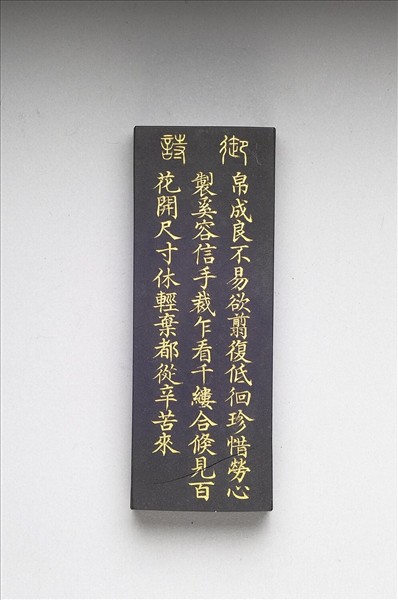 御詩
帛成良不易欲翦復低徊珍惜勞心
製奚容信手裁乍看千縷合倐見百
花開尺寸休輕棄都從辛苦來